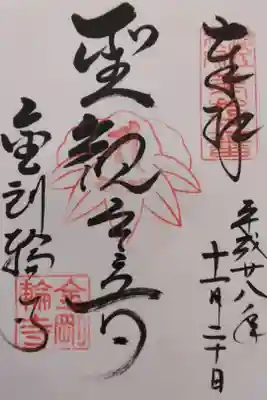 奉拝
平成廿八年
十一月二十日
聖観世音
金剛輪寺
金剛
輪寺